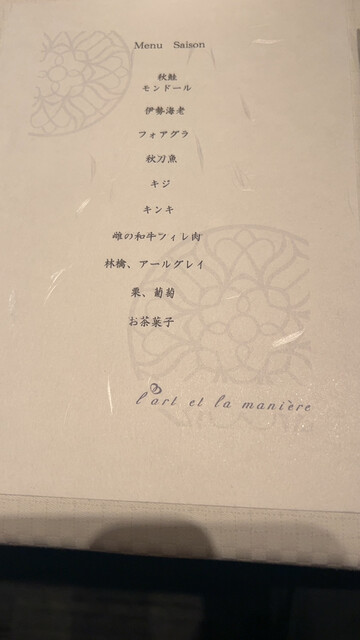 Menu Saison
秋鮭
モンドール
伊勢海老
フォアグラ
秋刀魚
キジ
キンキ
雌の和牛フィレ肉
林檎、アールグレイ
栗、葡萄
お茶菓子
l'art et la manière